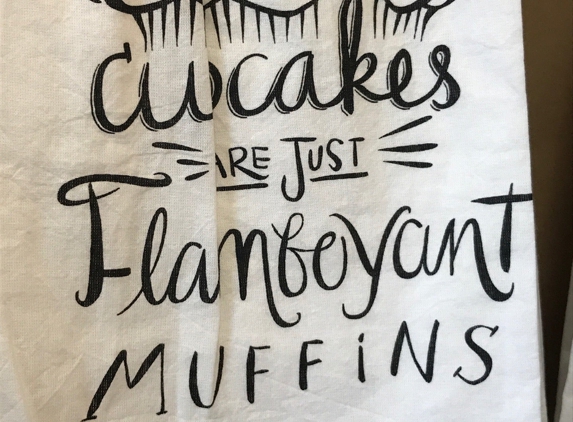 cupcakes
ARE JUST
Flamboyant
MUFFiNS